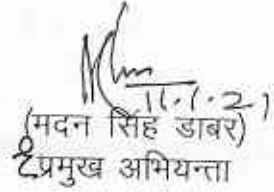 11.1.21
(मदन सिंह डाबर)
प्रमुख अभियन्ता